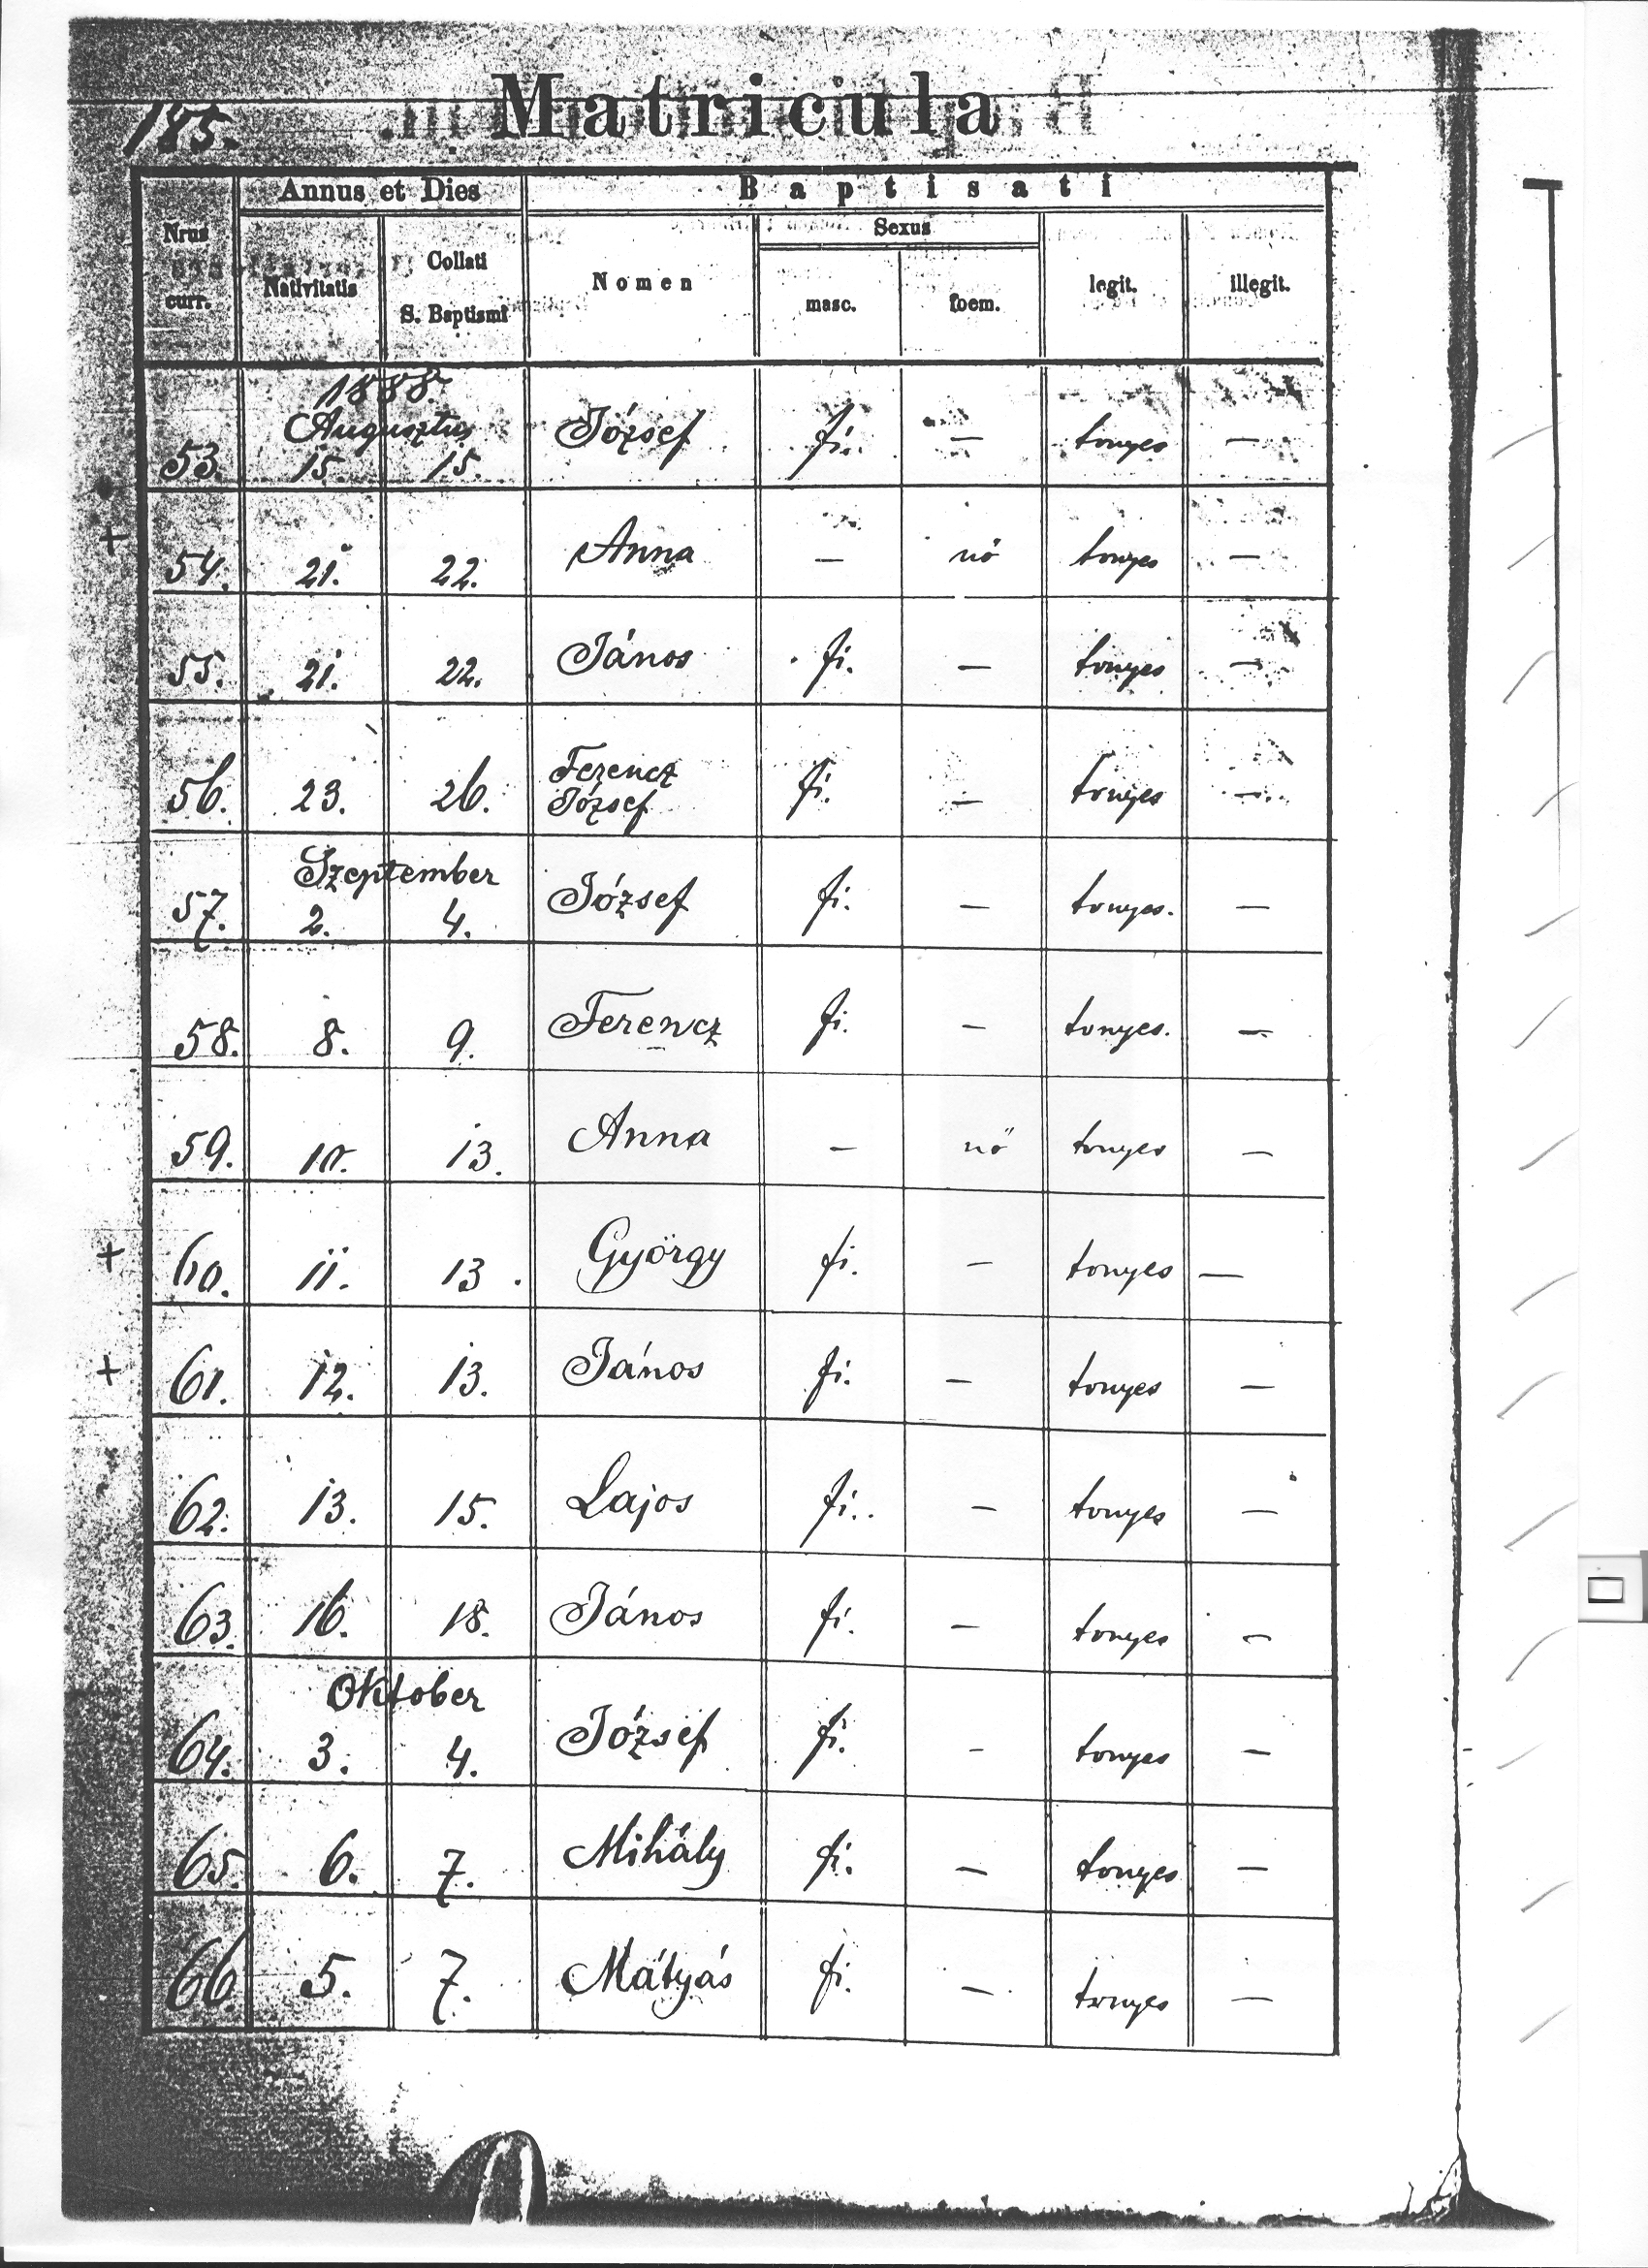 185.
Matricula
Annus et Dies
Baptisati
Nrus curr.
Nativitatis
Collati S. Baptismi
Nomen
Sexus
masc.
foem.
legit.
illegit.
1888.
Augusztus
53. 15. 15. József fi. — tvnyes —
+ 54. 21. 22. Anna — nő tvnyes —
55. 21. 22. János fi. — tvnyes —
56. 23. 26. Ferencz József fi. — tvnyes —
Szeptember
57. 2. 4. József fi. — tvnyes. —
58. 8. 9. Ferencz fi. — tvnyes. —
59. 10. 13. Anna — nő tvnyes —
+ 60. 11. 13. György fi. — tvnyes —
+ 61. 12. 13. János fi. — tvnyes —
62. 13. 15. Lajos fi. — tvnyes —
63. 16. 18. János fi. — tvnyes —
Oktober
64. 3. 4. József fi. — tvnyes —
65. 6. 7. Mihály fi. — tvnyes —
66. 5. 7. Mátyás fi. — tvnyes —